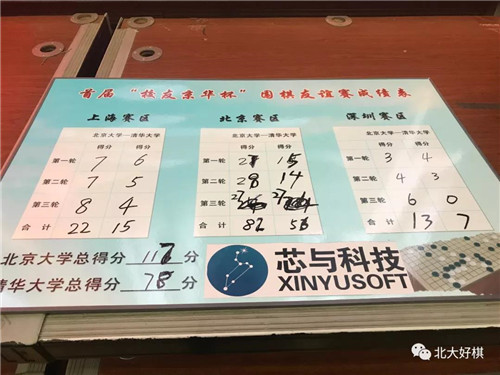 首届“校友京华杯”围棋友谊赛成绩表
上海赛区
北京大学—清华大学
得分 得分
第一轮 7 6
第二轮 7 5
第三轮 8 4
合计 22 15
北京赛区
北京大学—清华大学
得分 得分
第一轮 27 15
第二轮 28 14
第三轮 27 27
合计 82 56
深圳赛区
北京大学—清华大学
得分 得分
第一轮 3 4
第二轮 4 3
第三轮 6 0
合计 13 7
北京大学总得分 117 分
清华大学总得分 78 分
芯与科技
XINYUSOFT
北大好棋